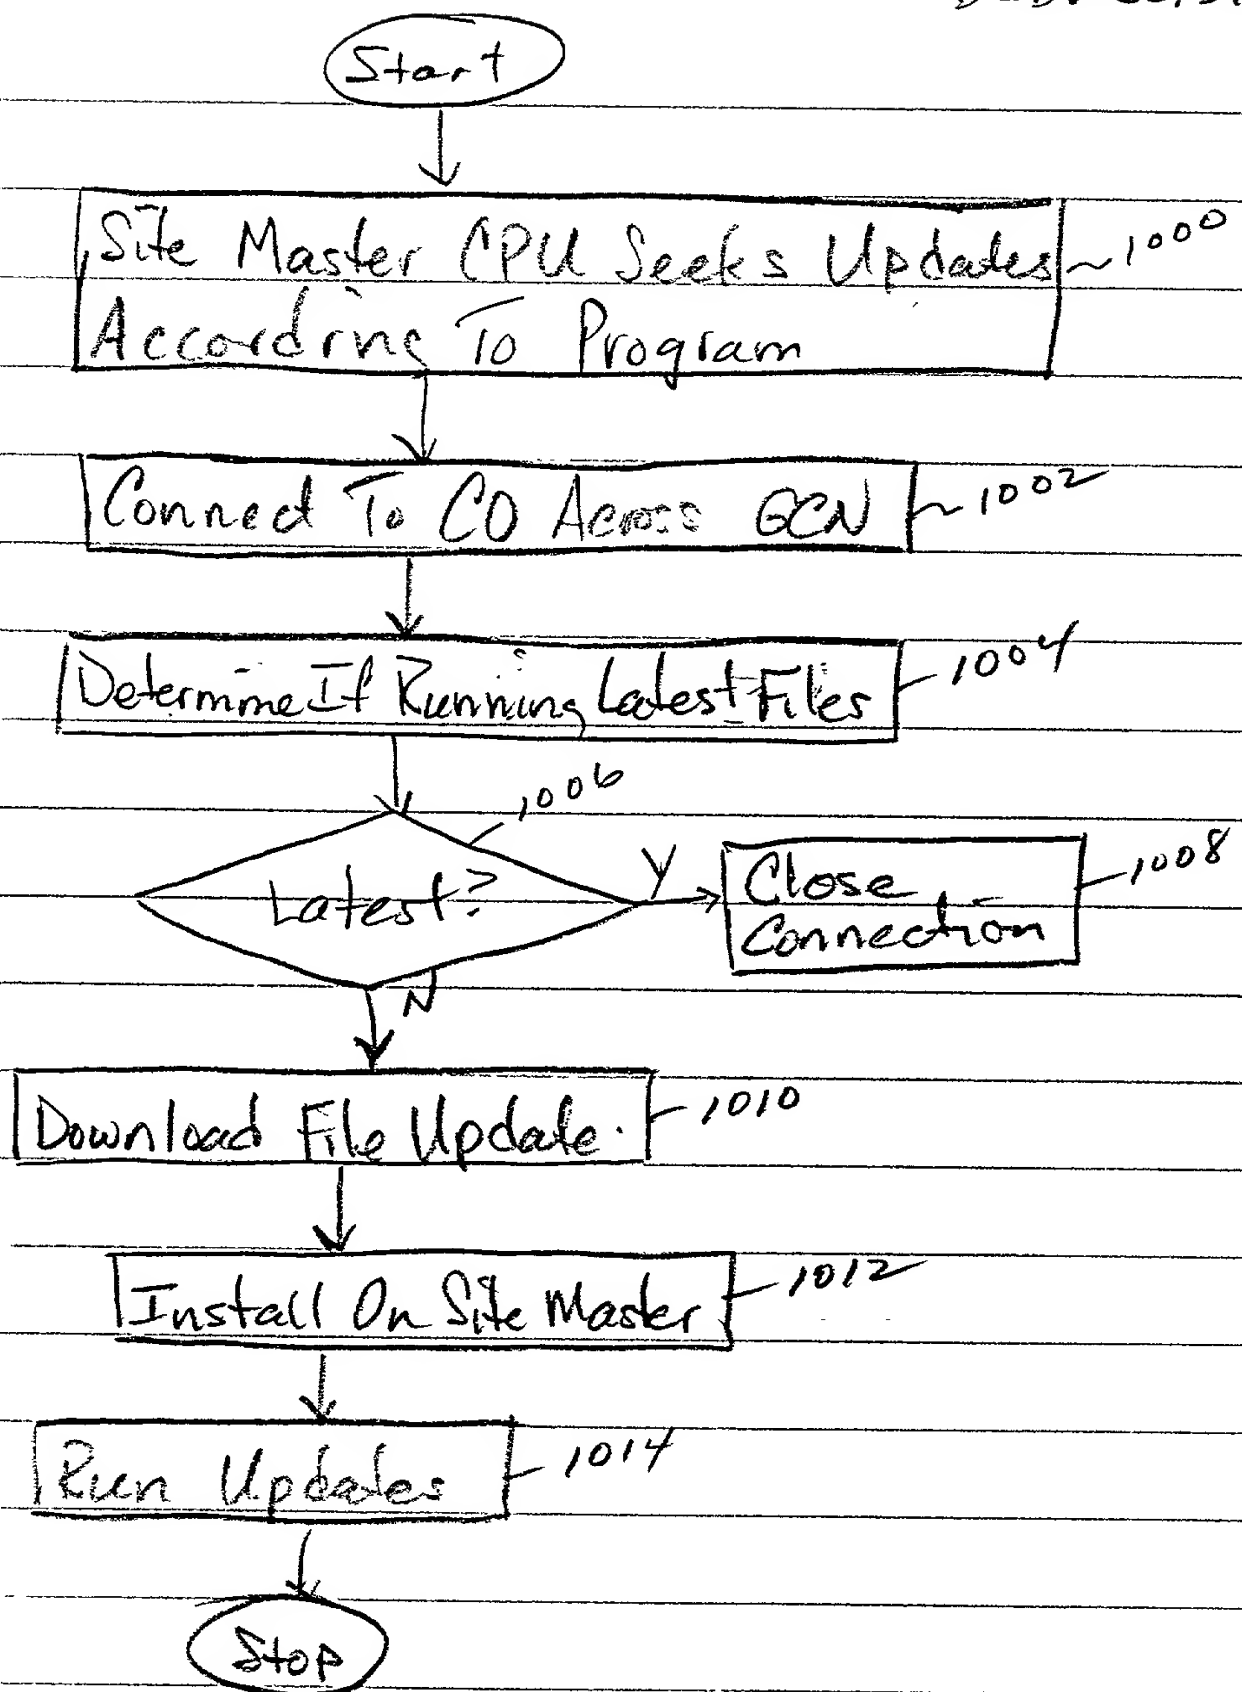 Start
Site Master CPU Seeks Updates
1000
According To Program
Connect To CO Across GCN
1002
Determine If Running Latest Files
1004
1006
Latest?
Y
Close
1008
Connection
N
Download File Update.
1010
Install On Site Master
1012
Run Updates
1014
Stop